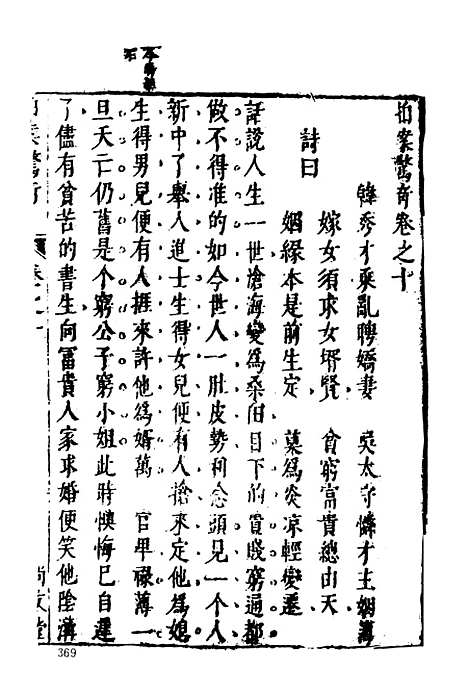 拍案驚奇卷之十
韓秀才乘亂聘嬌妻　吳太守憐才主姻簿
詩曰
嫁女須求女壻賢　貧窮富貴總由天
姻緣本是前生定　莫為炎凉輕變遷
話說人生一世滄海變為桑田目下的貴賤窮通都
做不得准的如今世人一肚皮勢利念頭見一個人
新中了舉人進士生得女兒便有人搶來定他為媳
生得男兒便有人捱來許他為婿萬　官卑祿薄一
旦夭亡仍舊是个窮公子窮小姐此時懊悔已自遲
了儘有貧苦的書生向富貴人家求婚便笑他陰溝
拍案驚奇　卷之十　尚友堂
369